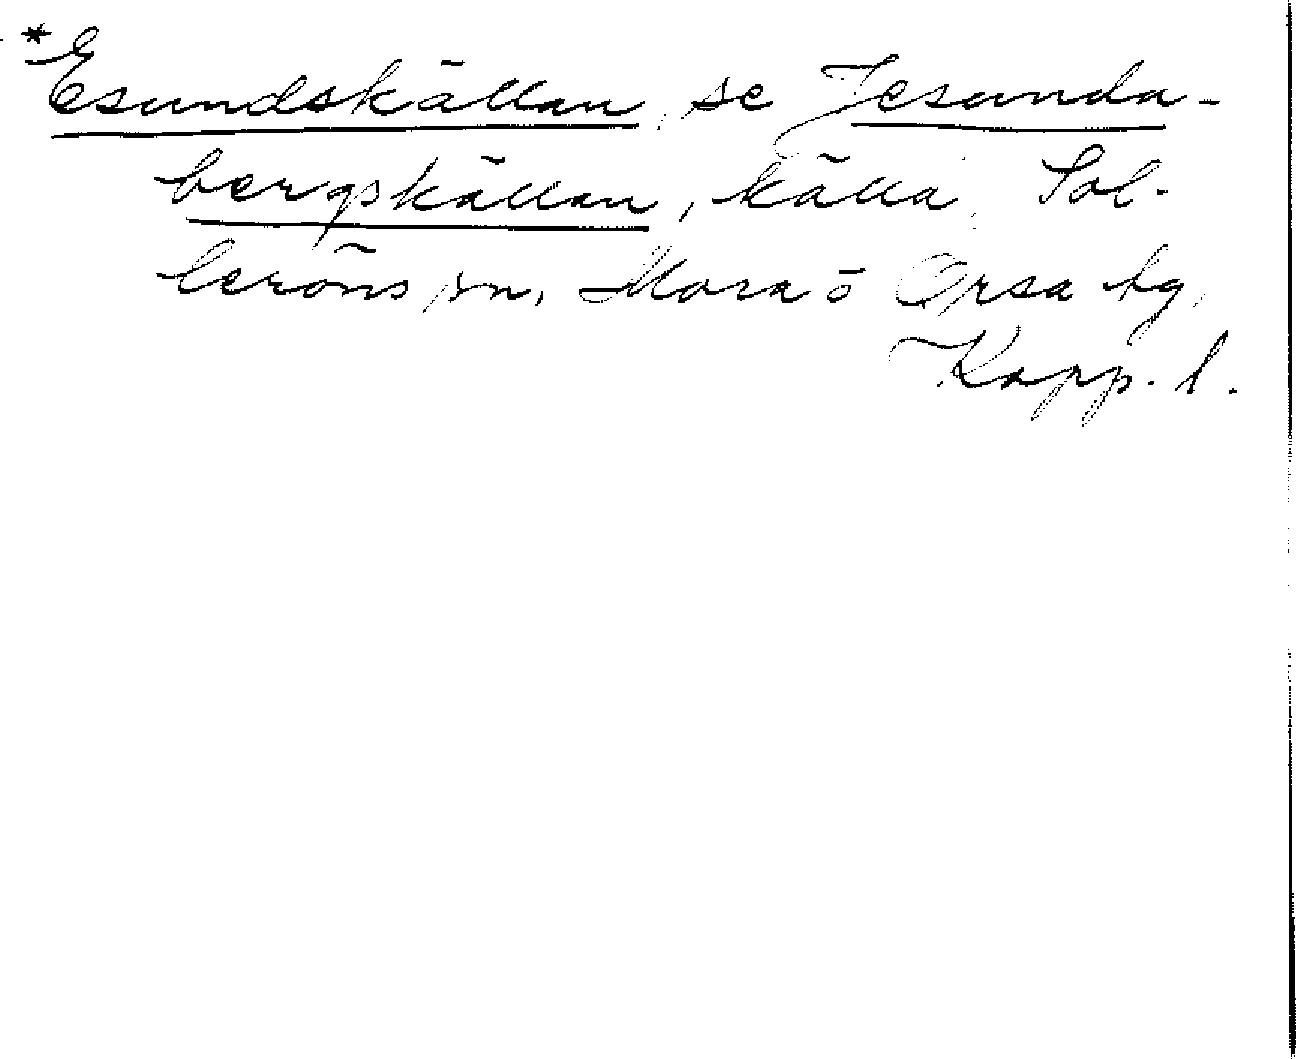 *Esundskällan, se Jesunda-
bergskällan, källa, Sol-
leröns sn, Mora o Orsa tg,
Kopp. l.